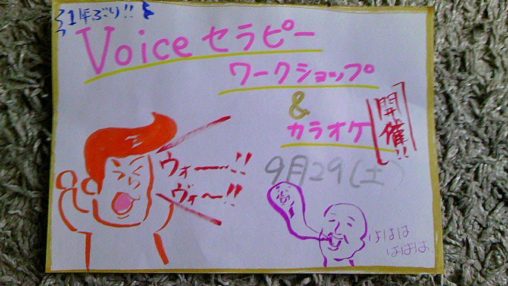 1年ぶり!!
Voiceセラピー
ワークショップ
&
カラオケ
開催!!
ウォー!!
ヴォ〜!!
9月29(土)
ははは
ははは